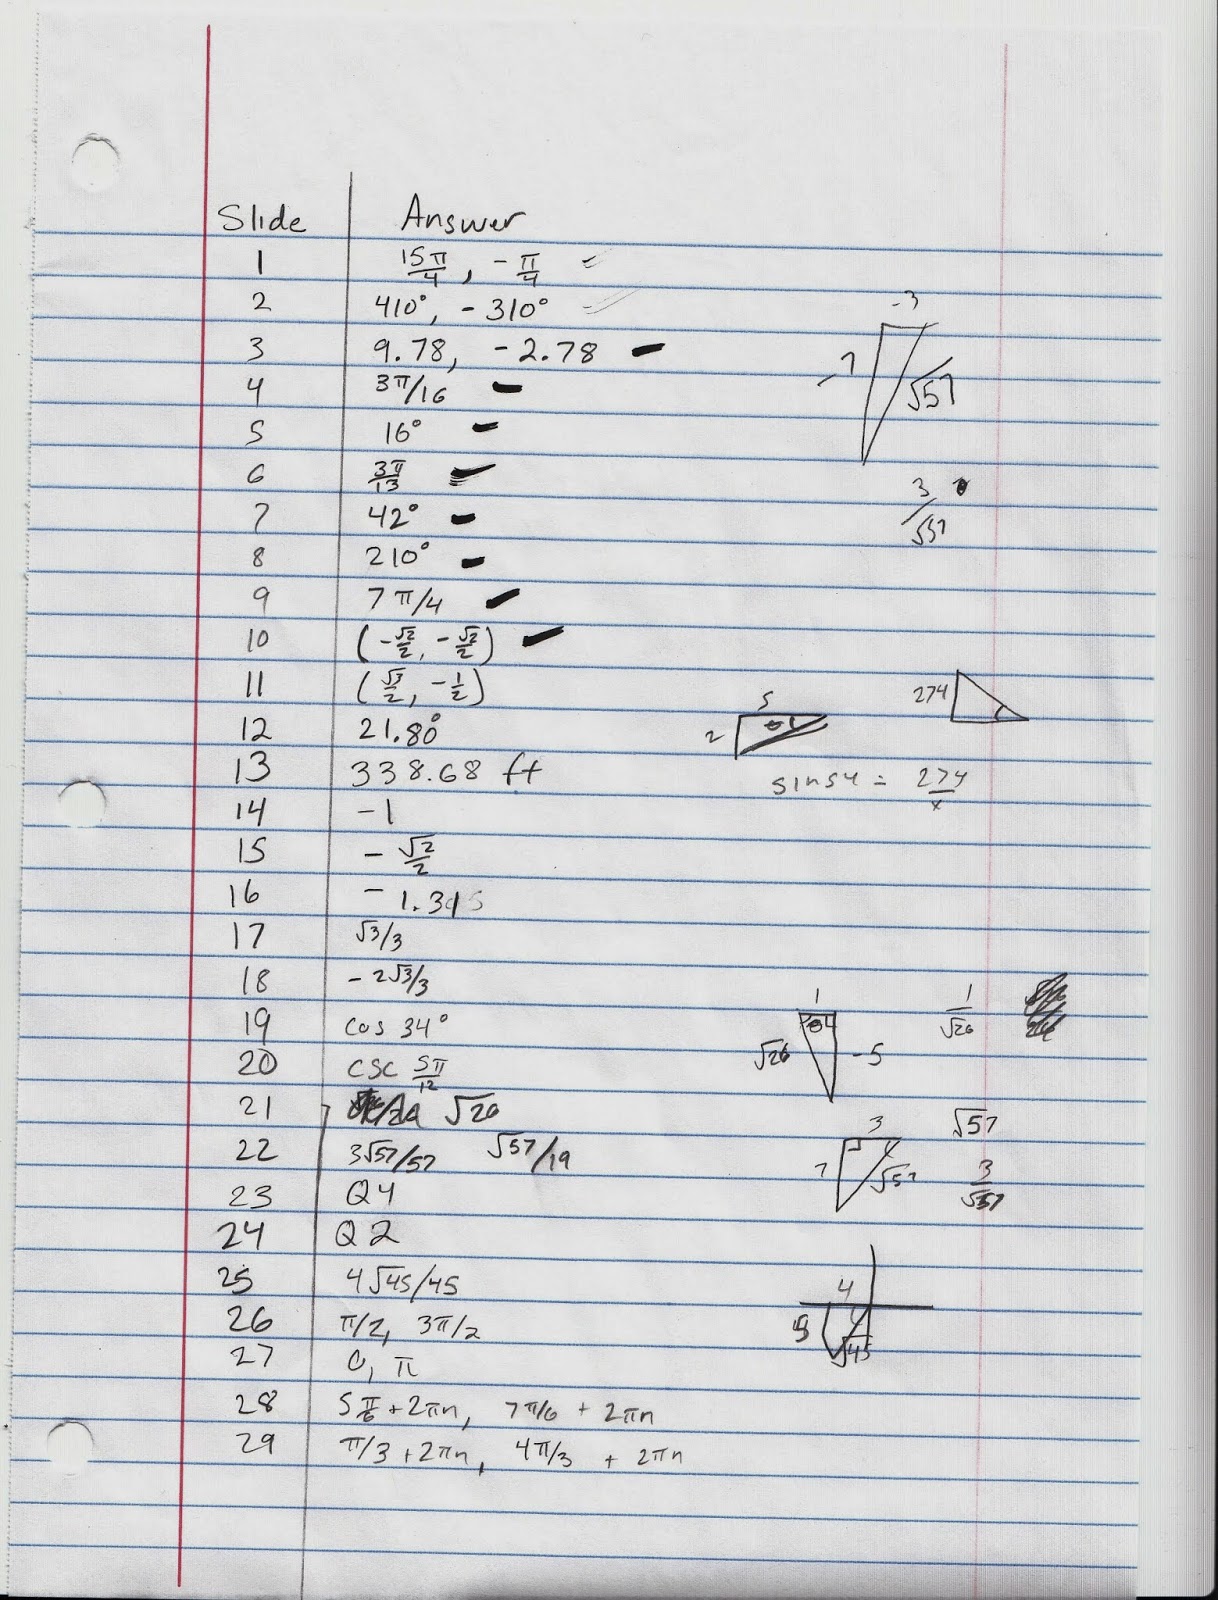 Slide Answer
1 15π/4, -π/4
2 410°, -310°
3 9.78, -2.78
4 3π/16
5 16°
6 3π/13
7 42°
8 210°
9 7π/4
10 (-√2/2, -√2/2)
11 (√3/2, -1/2)
12 21.80°
13 338.68 ft
14 -1
15 -√2/2
16
17 √3/3
18 -2√3/3
19 cos 34°
20 csc 5π/12
21 √26
22 3√57/57 √57/19
23 Q4
24 Q2
25 4√45/45
26 π/2, 3π/2
27 0, π
28 5π/6 + 2πn, 7π/6 + 2πn
29 π/3 + 2πn, 4π/3 + 2πn
-3
-7
√57
3/√57
5
2
274
sin54 = 274/x
1
√26
-5
1/√26
3
7
√57
√57
3/√57
4
√45